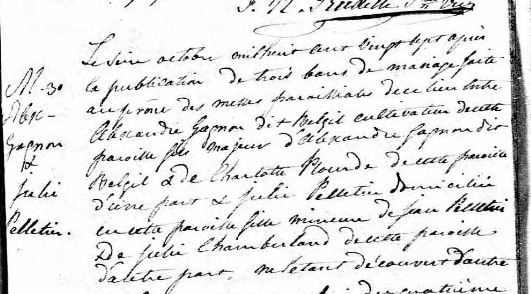 Le seize octobre mil huit cent vingt sept après
la publication de trois bans de mariage faite
au prône des messes paroissiales de ce lieu entre
Alexandre Gagnon dit Belzil cultivateur de cette
paroisse fils majeur d'Alexandre Gagnon dit
Belzil & de Charlotte Plourde de cette paroisse
d'une part & Julie Pelletier domiciliée
en cette paroisse fille mineure de Jean Pelletier
& de Julie Chamberland de cette paroisse
d'autre part, ne s'étant découvert d'autre
du quatrième
M. 30
Alex-
Gagnon
&
Julie
Pelletier.